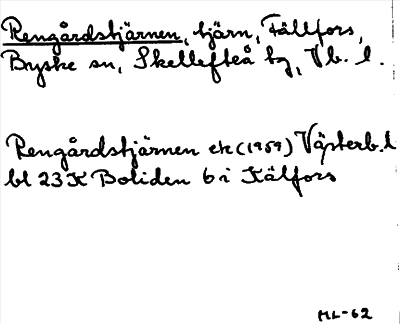 Rengårdstjärnen, tjärn, Fällfors,
Byske sn, Skellefteå tg, Vb. l.
Rengårdstjärnen ek (1959) Västerb. l
bl 23 K Boliden 6 i Källfors
ML-62